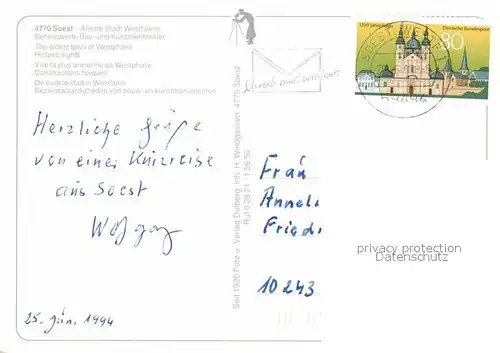 4770 Soest - Älteste Stadt Westfalens
Sehenswerte Bau- und Kunstdenkmäler
The oldest town of Westphalia
Historic sights
Ville la plus ancienne de Westphalie
Constructions typiques
De oudste stad in Westfalen
Bezienswaardigheden van bouw- en kunstmonumenten
Herzliche Grüße
von einer Kurzreise
aus Soest
Wolfgang
25. Jan. 1994
Seit 1920 Foto u. Verlag Dülberg, Inh. H. Windgassen 4770 Soest
Ruf 0 29 21
Schreib mal wieder.
1250 Jahre Fulda
Deutsche Bundespost
80
Frau
Annel
Fried
10 243
privacy protection
Datenschutz